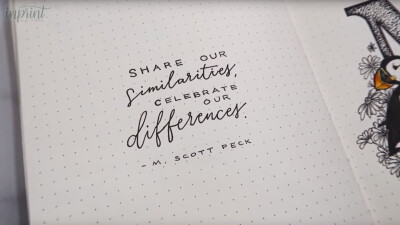 imprint
SHARE OUR
Similarities,
CELEBRATE
OUR
differences.
- M. SCOTT PECK